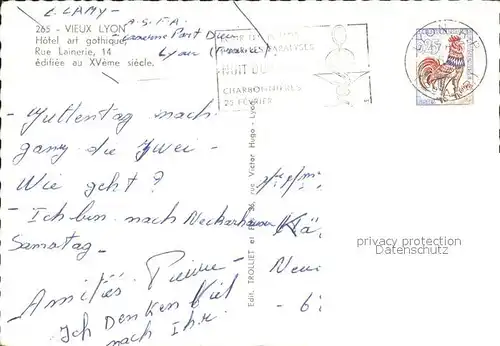 C. LAMY -
A.S.F.A.
265 - VIEUX LYON
Hôtel art gothique,
Rue Lainerie, 14
édifiée au XVème siècle.
Caserne Part Dieu
Lyon
NUIT DU
CHARBONNIERES
25 FEVRIER
- Juttentag nach
gang die zwei -
Wie geht ?
- Ich bin nach Neckarhausen
Samstag -
Amitiés Pierre -
Ich Denken Viel
nach Ihr.
Edit. TROLLIET et rue Victor Hugo - Lyon
Kä
Neu
- 6
privacy protection
Datenschutz